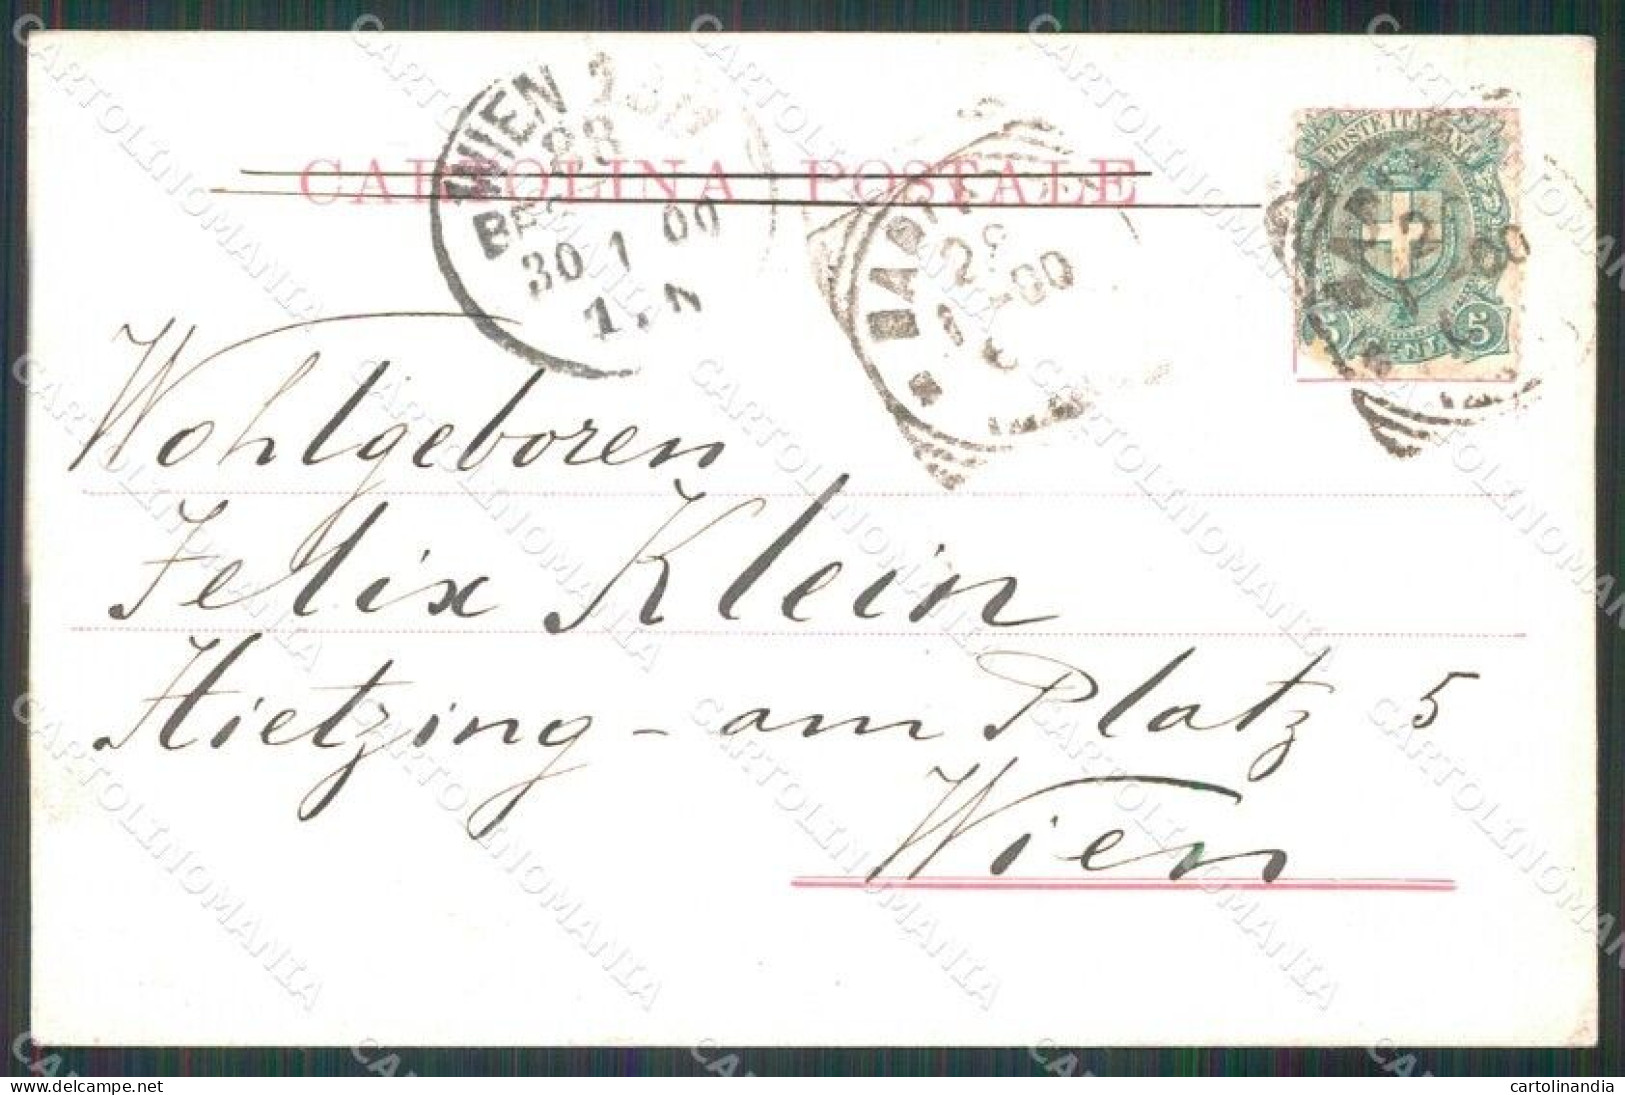 CARTOLINA POSTALE
WIEN
88
30 1 00
POSTE ITALIANE
5 5
Wohlgeboren
Felix Klein
Hietzing - am Platz 5
Wien
CARTOLINOMANIA
delcampe.net
cartolinandia